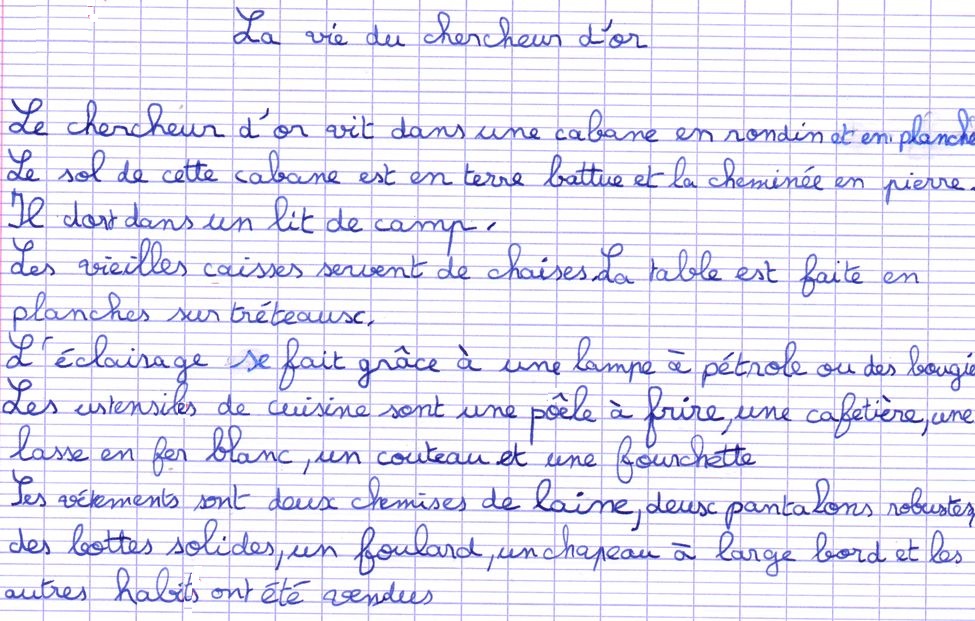 La vie du chercheur d'or
Le chercheur d'or vit dans une cabane en rondin et en planche
Le sol de cette cabane est en terre battue et la cheminée en pierre.
Il dort dans un lit de camp.
Les vieilles caisses servent de chaises. La table est faite en
planches sur tréteaux.
L'éclairage se fait grâce à une lampe à pétrole ou des bougie
Les ustensiles de cuisine sont une poêle à frire, une cafetière, une
tasse en fer blanc, un couteau et une fourchette
Ses vêtements sont deux chemises de laine, deux pantalons robustes,
des bottes solides, un foulard, un chapeau à large bord et les
autres habits ont été vendus